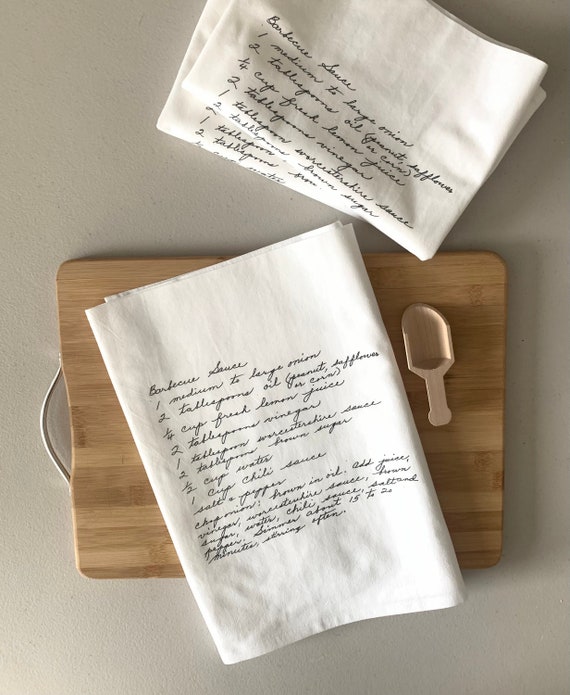 Barbecue Sauce
1 medium to large onion
2 tablespoons oil (peanut, safflower
or corn)
1/4 cup fresh lemon juice
2 tablespoons vinegar
1 tablespoon worcestershire sauce
2 tablespoons brown sugar
1/2 cup water
Barbecue Sauce
1 medium to large onion
2 tablespoons oil (peanut, safflower
or corn)
1/4 cup fresh lemon juice
2 tablespoons vinegar
1 tablespoon worcestershire sauce
2 tablespoons brown sugar
1/2 cup water
1 cup chili sauce
salt & pepper
Chop onion: brown in oil. Add juice,
vinegar, worcestershire sauce, brown
sugar, water, chili sauce, salt and
pepper. Simmer about 15 to 20
minutes, stirring often.